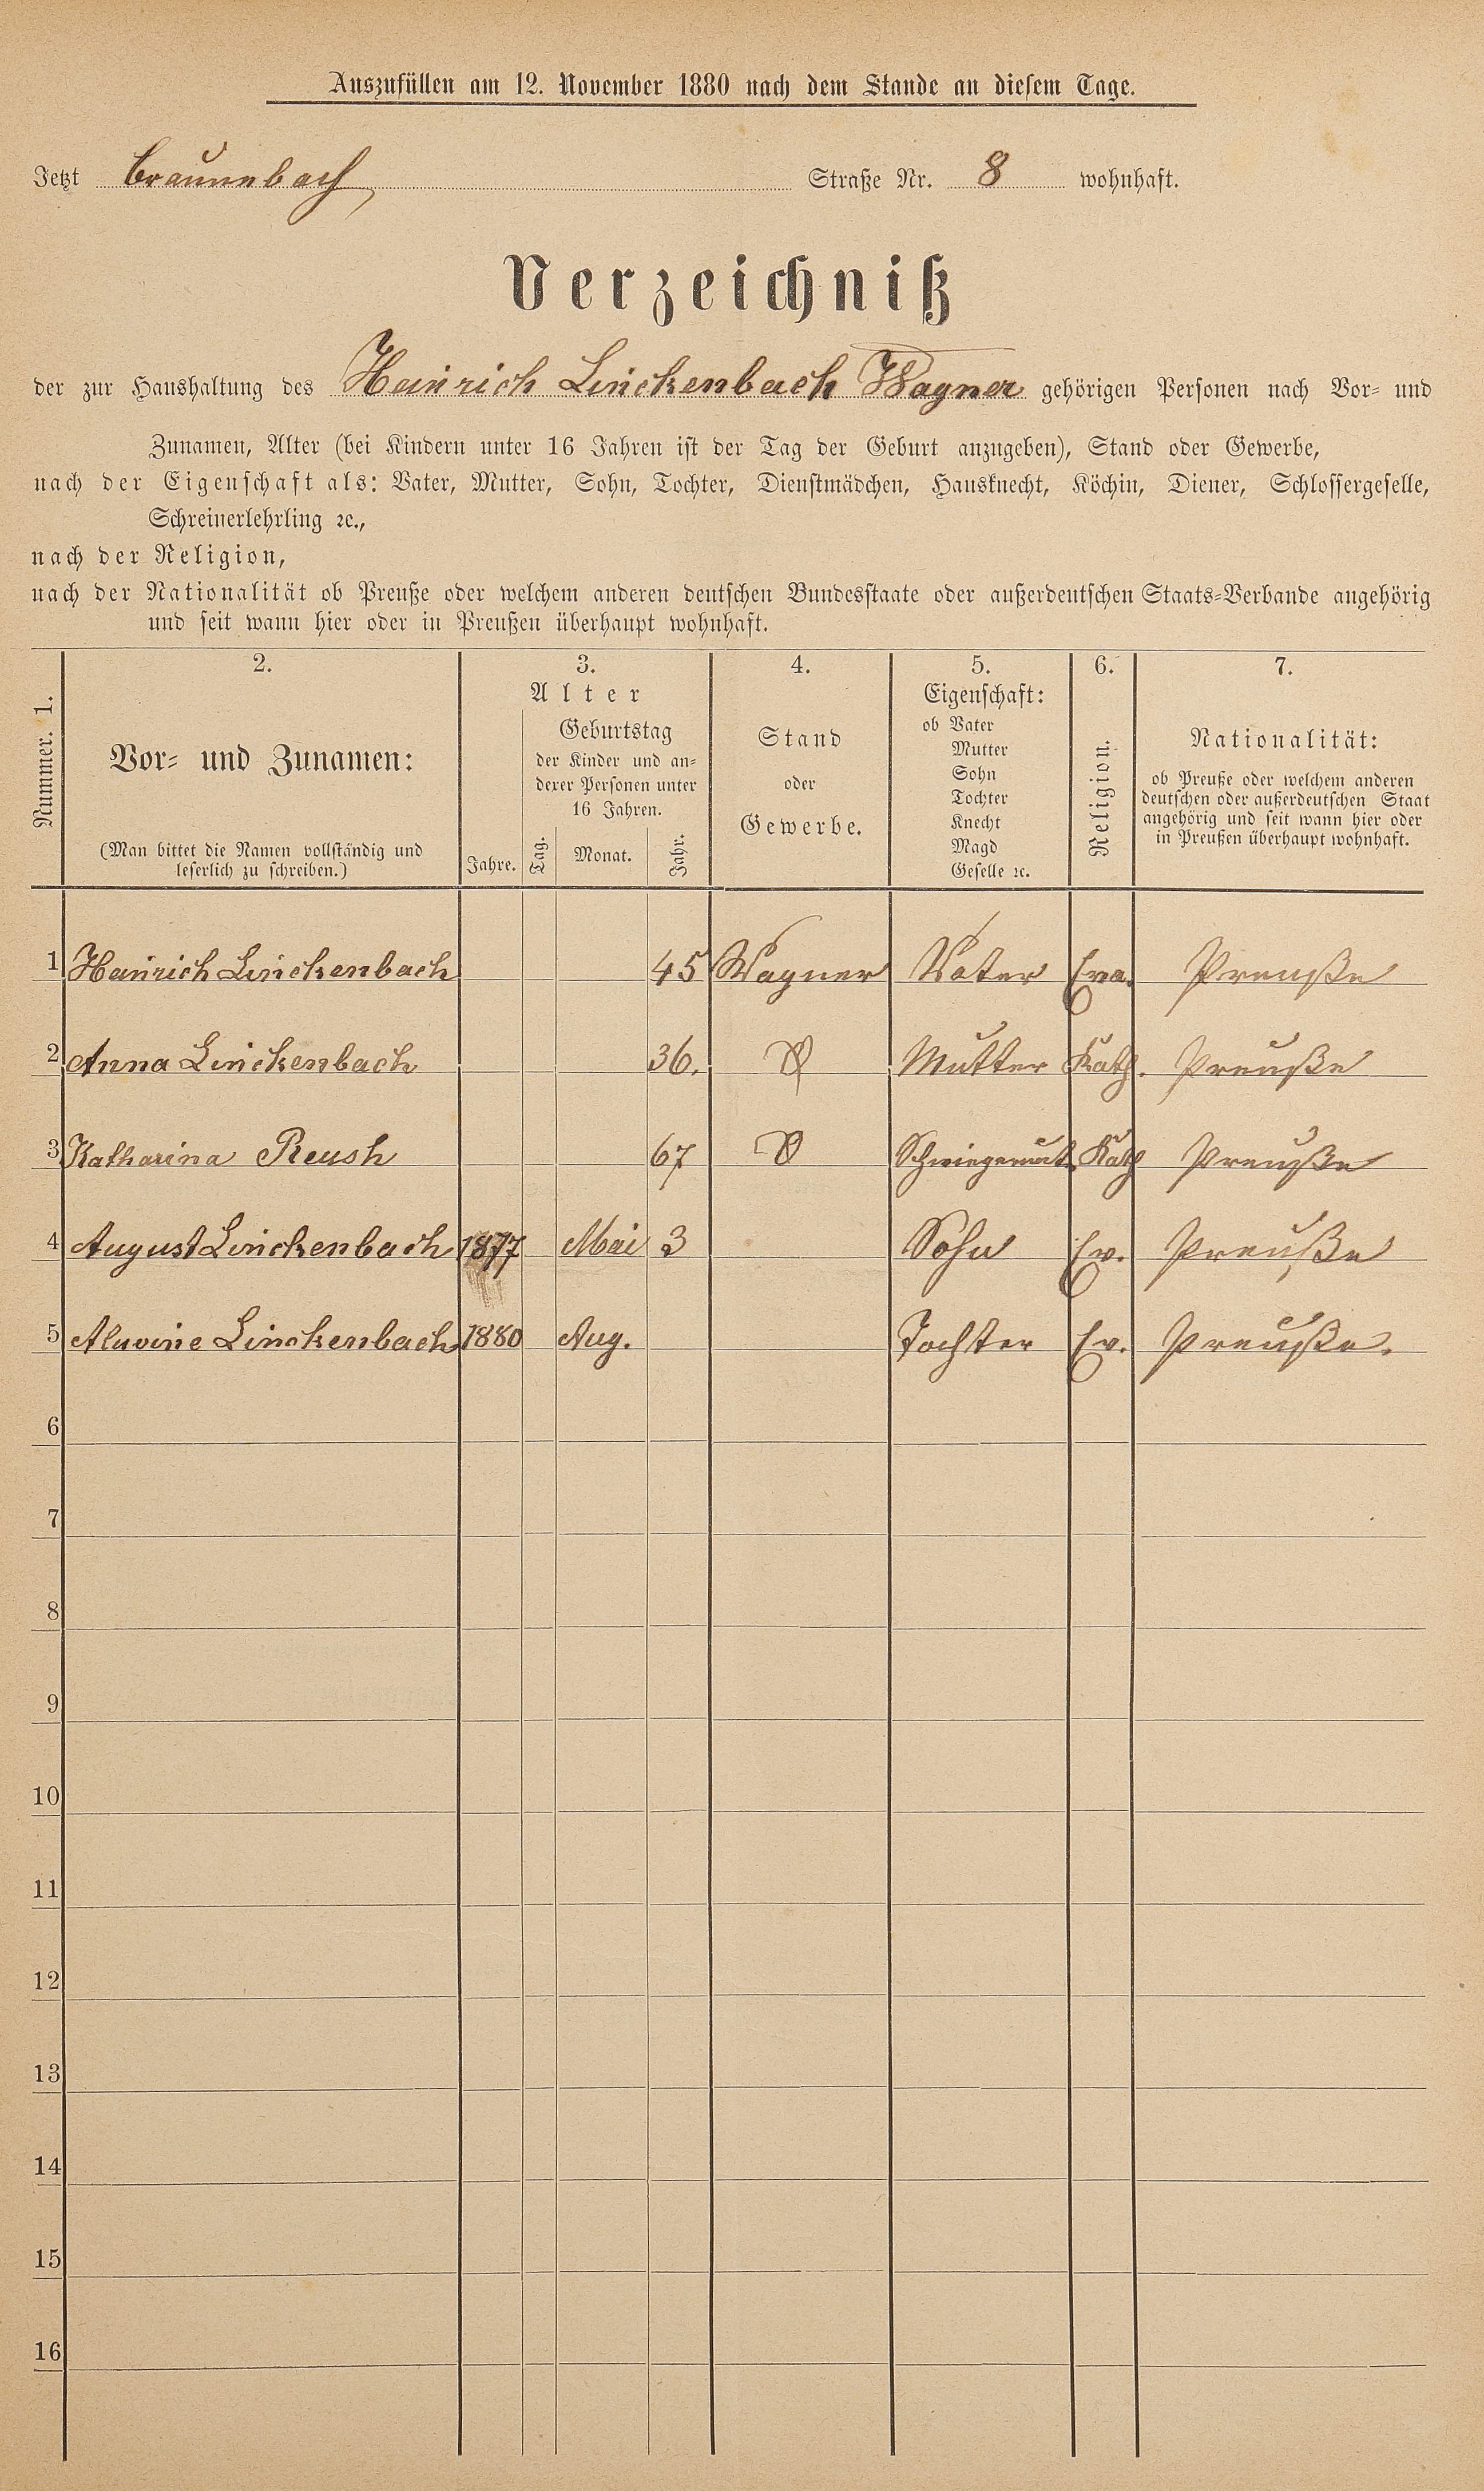 Auszufüllen am 12. November 1880 nach dem Stande an diesem Tage.
Jetzt Braunebach Straße Nr. 8 wohnhaft.
Verzeichniß
der zur Haushaltung des Heinrich Linckenbach Wagner gehörigen Personen nach Vor- und
Zunamen, Alter (bei Kindern unter 16 Jahren ist der Tag der Geburt anzugeben), Stand oder Gewerbe,
nach der Eigenschaft als: Vater, Mutter, Sohn, Tochter, Dienstmädchen, Hausknecht, Köchin, Diener, Schlossergeselle,
Schreinerlehrling ꝛc.,
nach der Religion,
nach der Nationalität ob Preuße oder welchem anderen deutschen Bundesstaate oder außerdeutschen Staats-Verbande angehörig
und seit wann hier oder in Preußen überhaupt wohnhaft.
Nummer. 1.
2.
Vor- und Zunamen:
(Man bittet die Namen vollständig und
leserlich zu schreiben.)
3.
Alter
Jahre.
Geburtstag
der Kinder und an-
derer Personen unter
16 Jahren.
Tag. Monat. Jahr.
4.
Stand
oder
Gewerbe.
5.
Eigenschaft:
ob Vater
Mutter
Sohn
Tochter
Knecht
Magd
Geselle ꝛc.
6.
Religion.
7.
Nationalität:
ob Preuße oder welchem anderen
deutschen oder außerdeutschen Staat
angehörig und seit wann hier oder
in Preußen überhaupt wohnhaft.
1 Heinrich Linckenbach 45 Wagner Vater Eva. Preuße
2 Anna Linckenbach 36. Mutter Kath. Preuße
3 Katharina Reush 67 Schwiegermut. Kath Preuße
4 August Linckenbach 1877 Mai 3 Sohn Ev. Preuße
5 Aluvine Linckenbach 1880 Aug. Tochter Ev. Preuße.
6
7
8
9
10
11
12
13
14
15
16